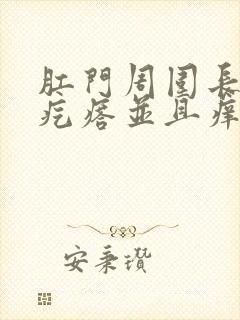 肛門周围長
疙瘩並且痒
安秉瓚